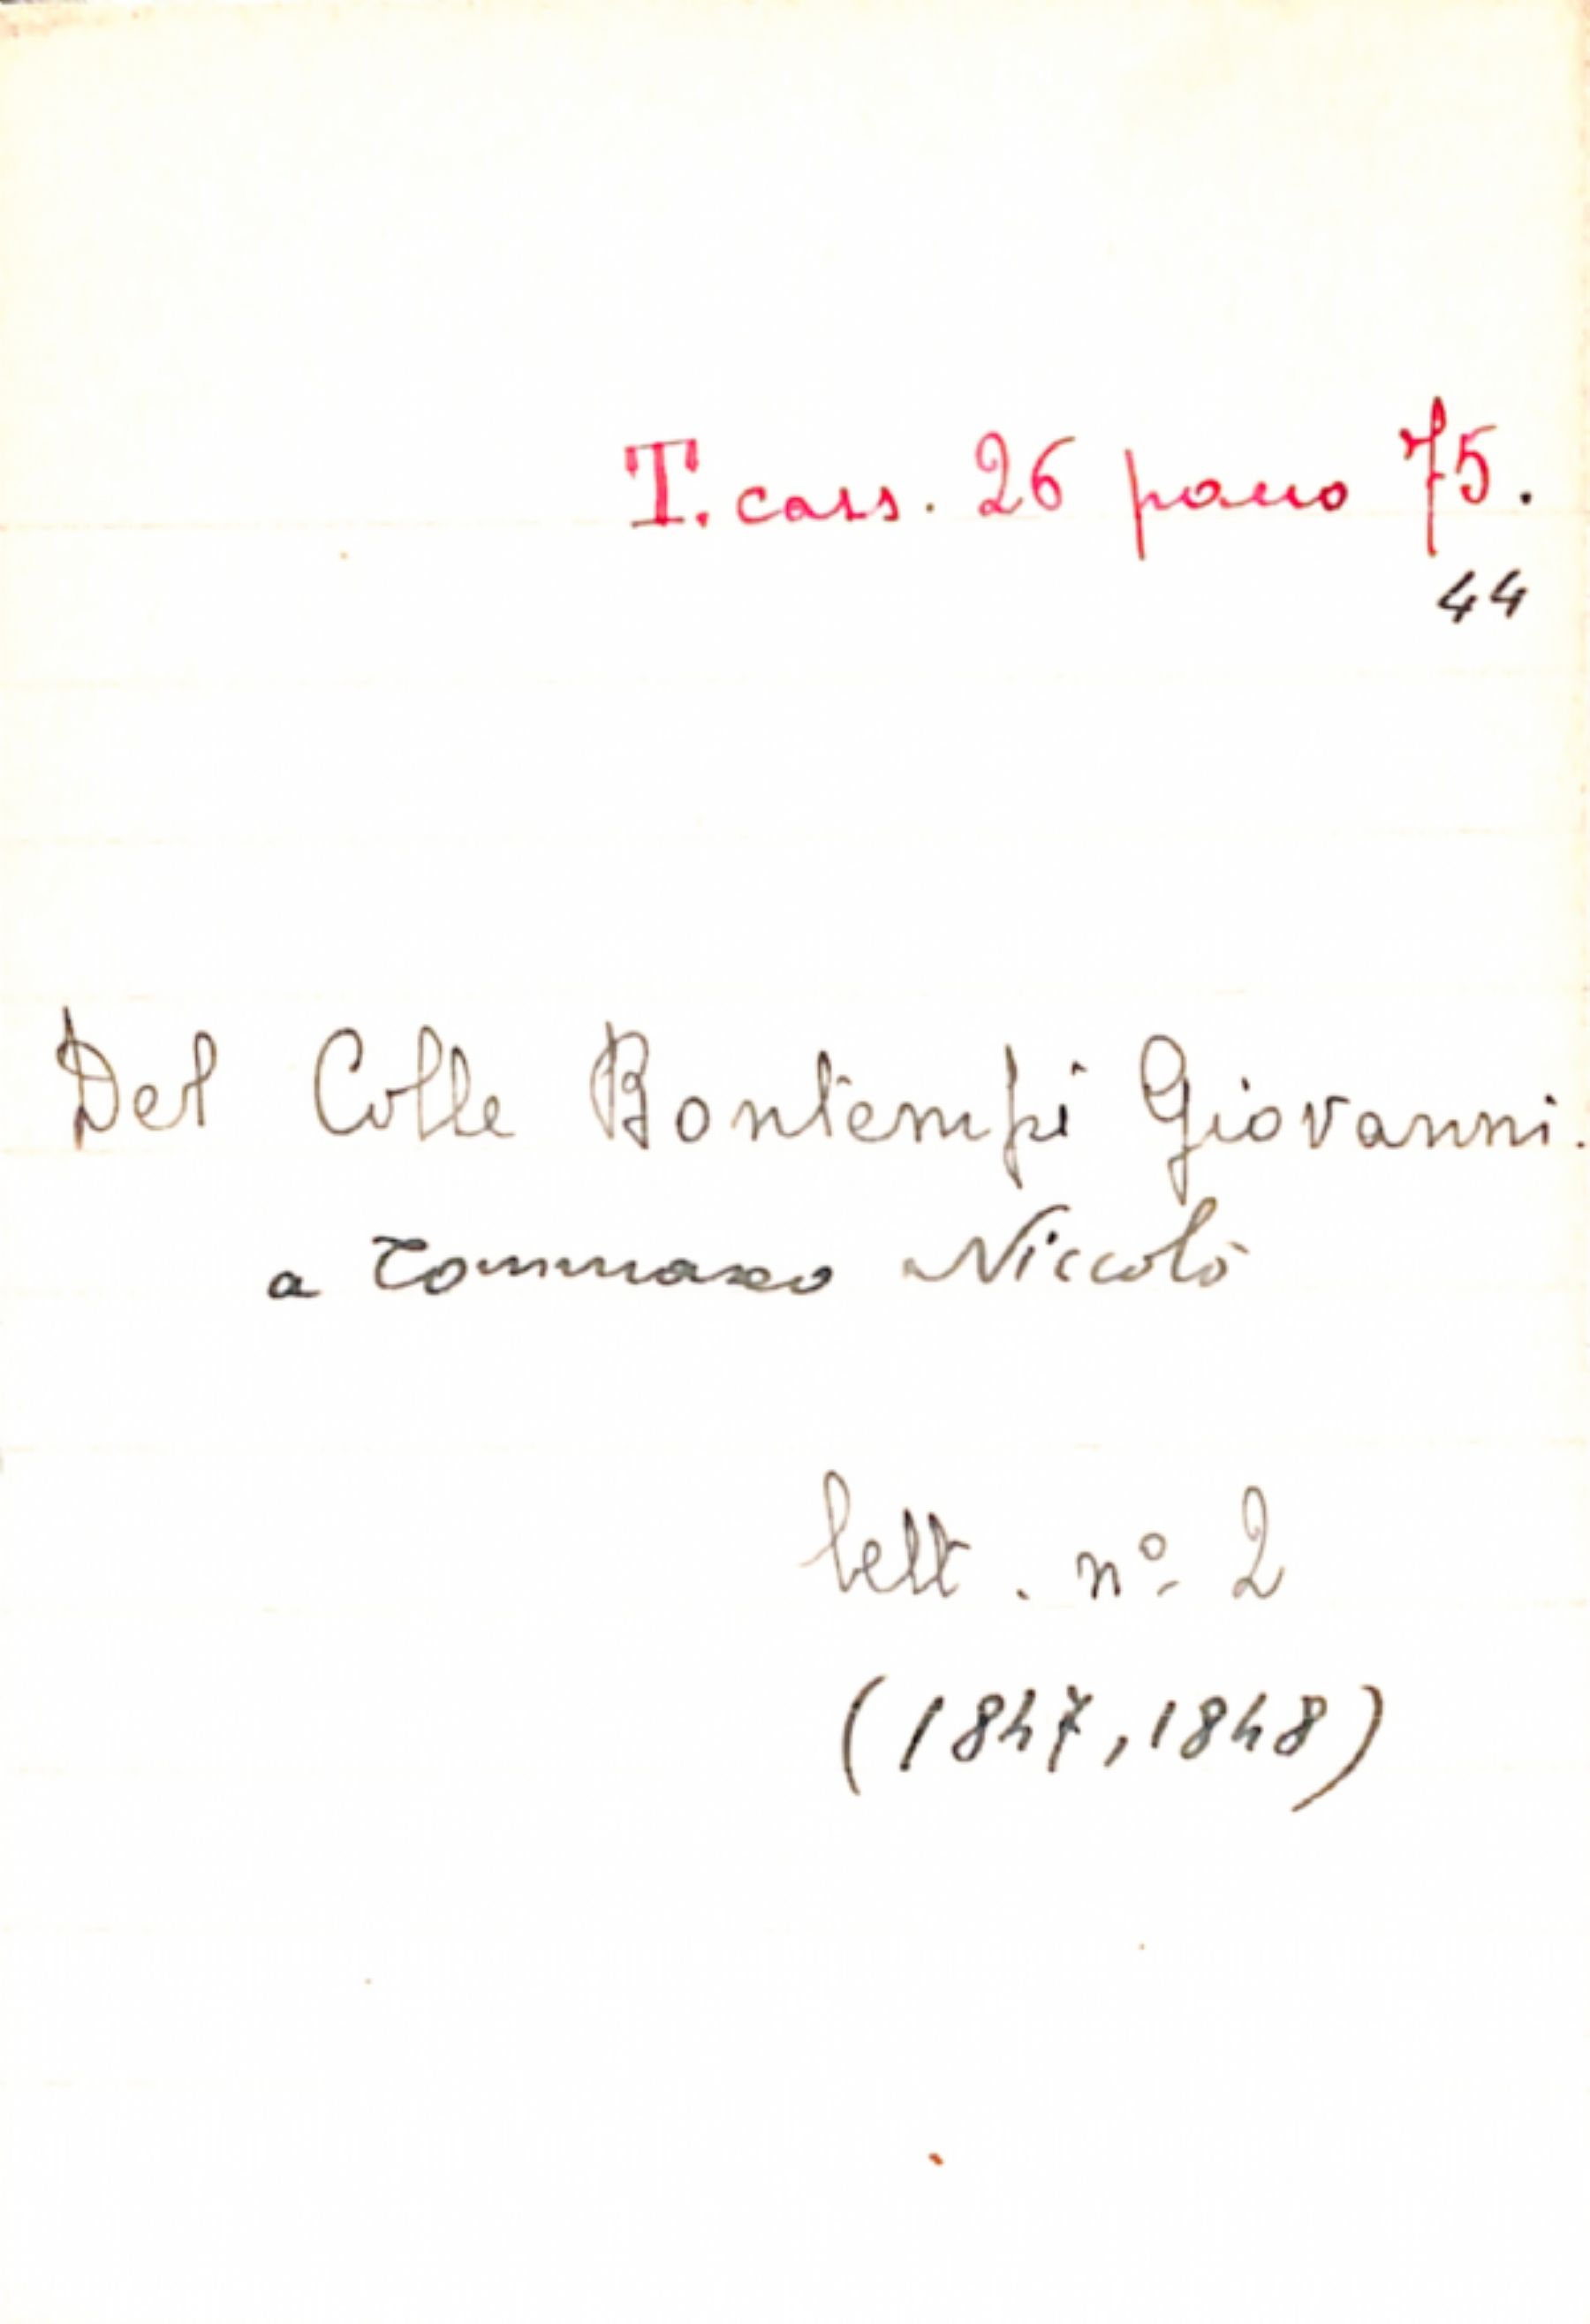 T. cass. 26 pacco 75.
44
Del Colle Bontempi Giovanni.
a Tommaseo Niccolò
lett. nº 2
(1847, 1848)